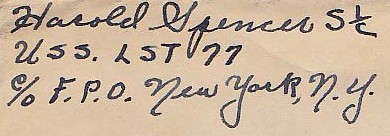 Harold Spencer S 1/c
U.S.S. LST 77
c/o F.P.O. New York, N.Y.